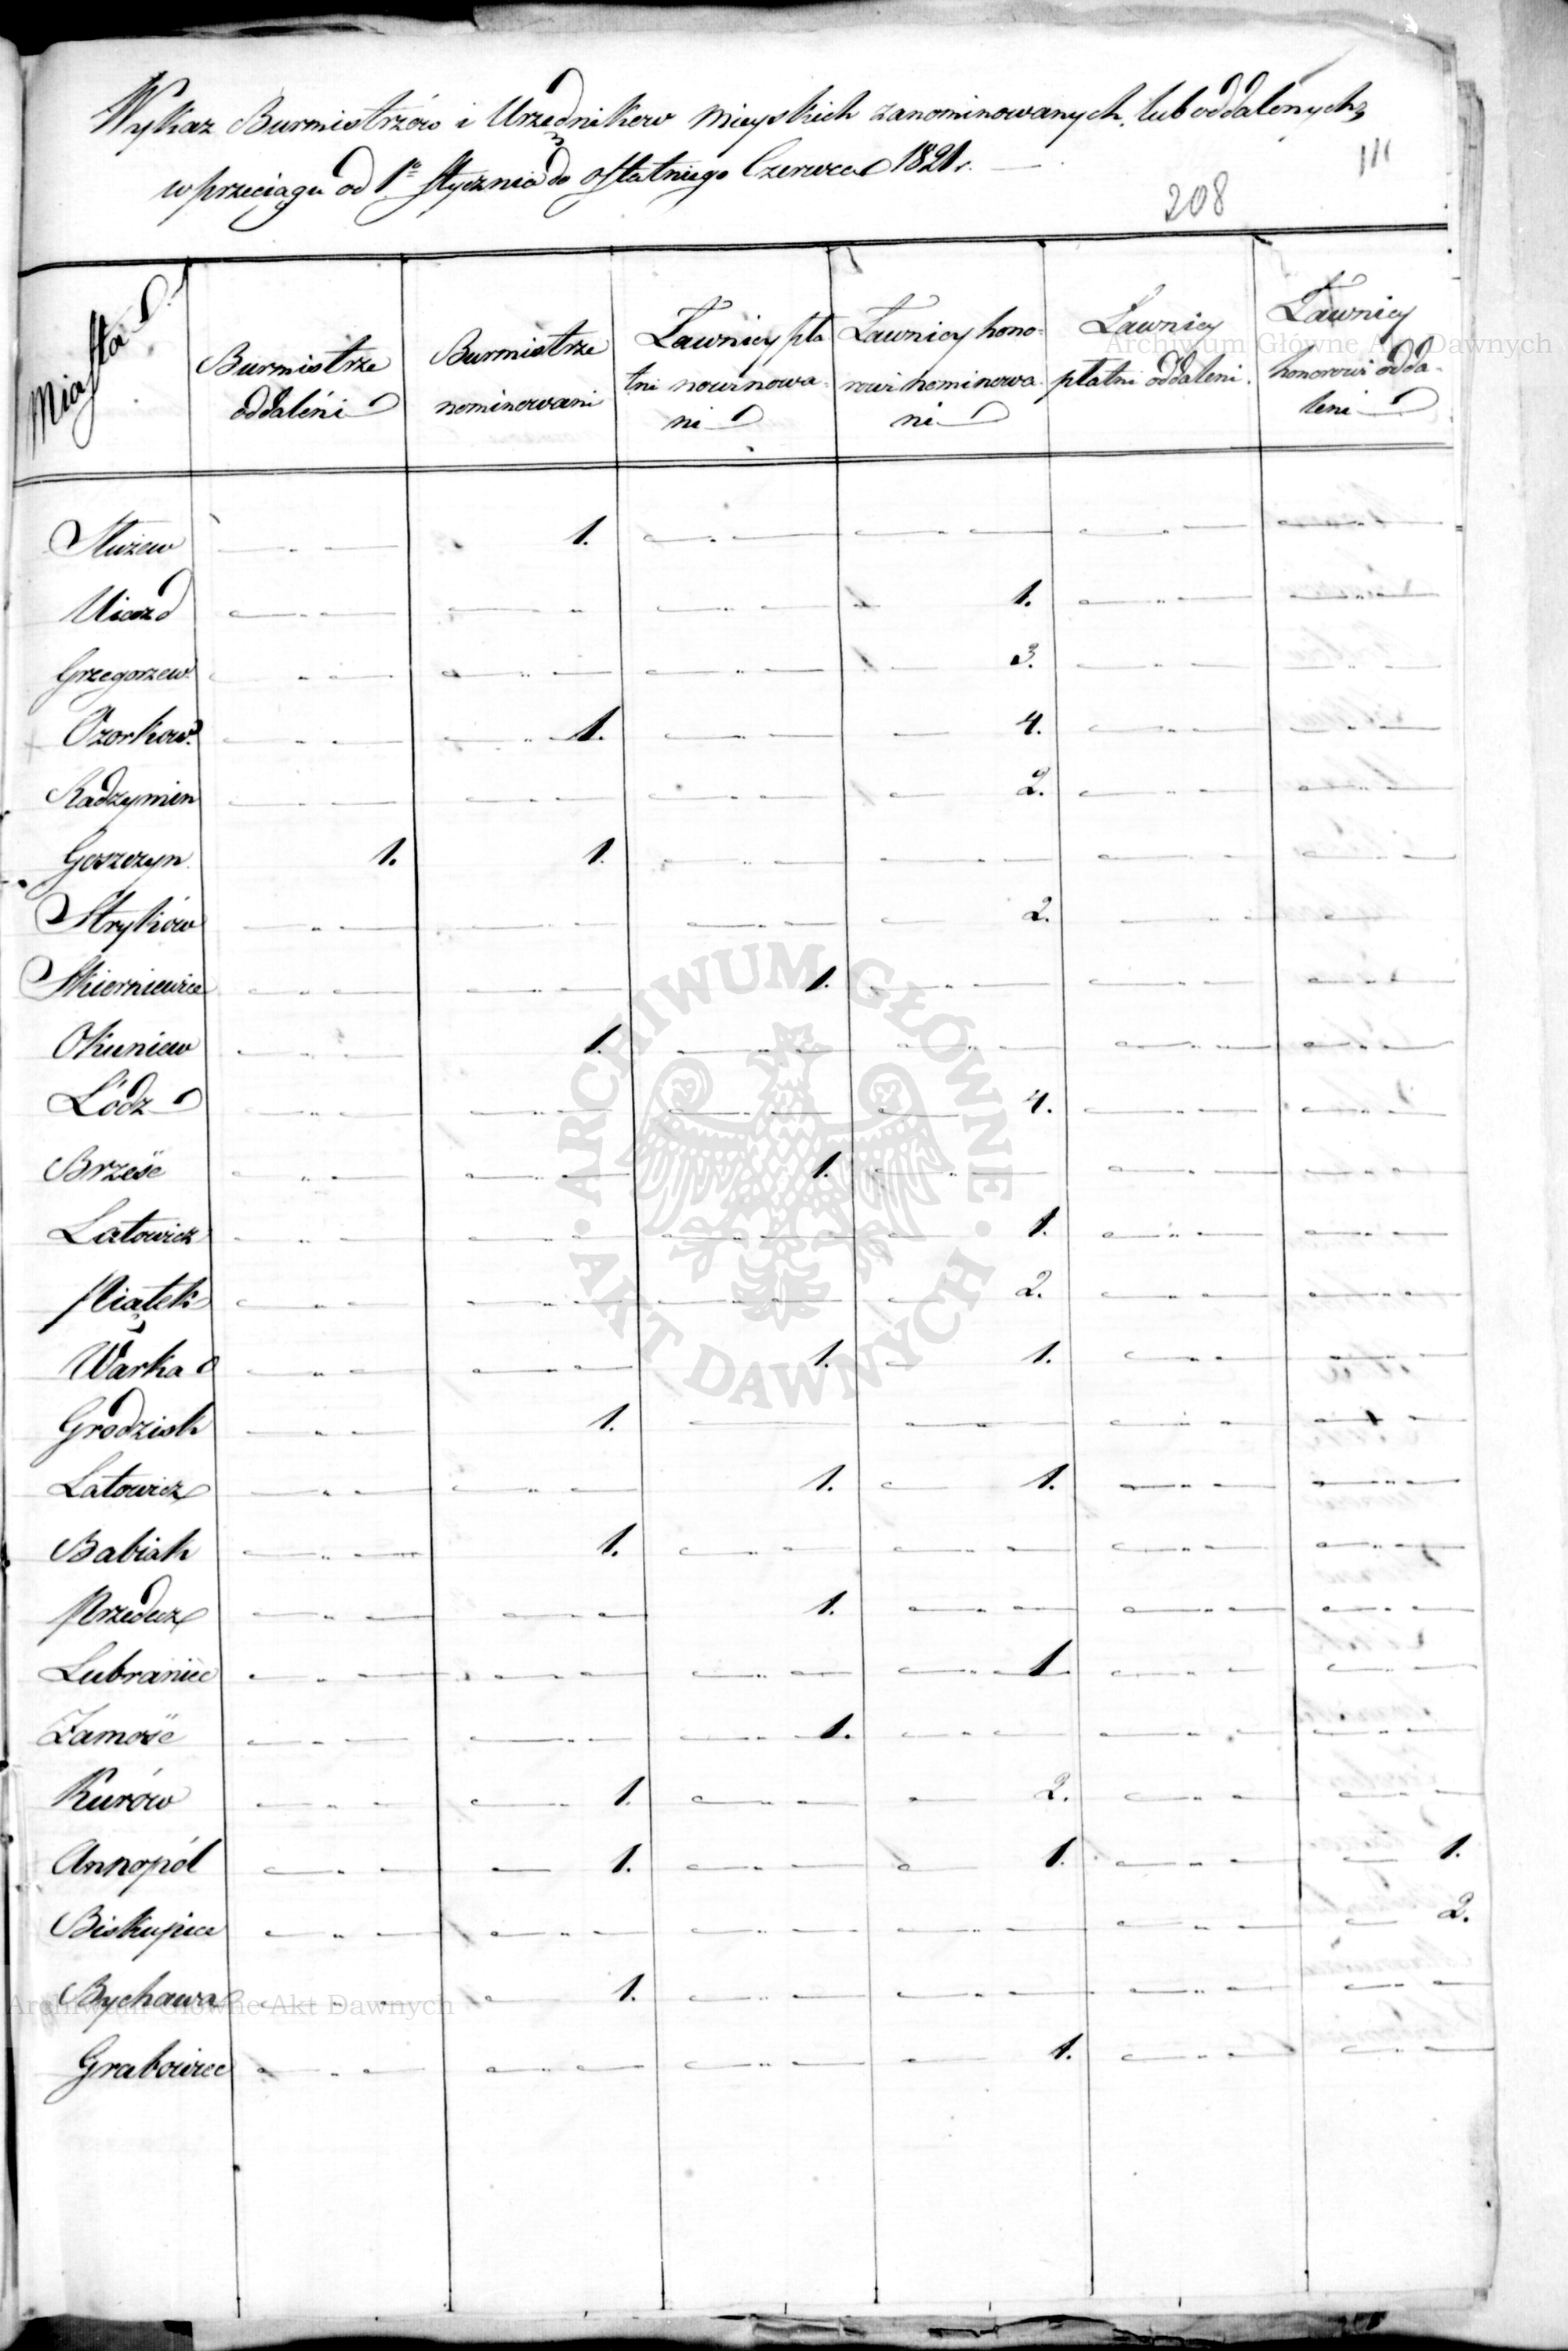 Wykaz Burmistrzów i Urzędnikow Mieyskich zanominowanych, lub oddalonych
w przeciągu od 1o Stycznia do ostatniego Czerwca 1821 r.
111
208
Miasta
Burmistrze oddaleni
Burmistrze nominowani
Ławnicy płatni nominowani
Ławnicy honorowi nominowani
Ławnicy płatni oddaleni.
Ławnicy honorowi oddaleni
Służew 1.
Uiazd 1.
Grzegorzew 3.
Ozorkow 1. 4.
Radzymin 2.
Goszczyn 1. 1.
Stryków 2.
Skierniewice 1.
Okuniew 1.
Łódz 4.
Brześć 1.
Latowicz 1.
Piątek 2.
Warka 1. 1.
Grodzisk 1.
Latowicz 1. 1.
Babiak 1.
Przedecz 1.
Lubraniec 1
Zamość 1.
Kurów 1. 2.
Annopól 1. 1. 1.
Biskupice 2.
Bychawa 1.
Grabowiec 1.
Archiwum Główne Akt Dawnych
ARCHIWUM GŁÓWNE AKT DAWNYCH
Archiwum Główne Akt Dawnych